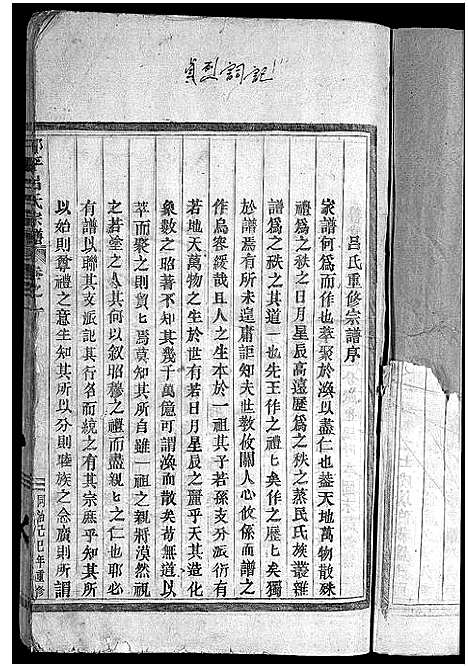 貞烈詞記
呂氏重修宗譜序
家譜何為而作也萃聚於渙以盡仁也蓋天地萬物散殊
禮為之秩之日月星辰高遠歷為之秩之蒸民氏族叢雜
於譜為之秩之其道一也先王作之禮匕矣作之歷匕矣獨
於譜焉有所未遑庸詎知夫世教攸關人心攸係而譜之
作烏容緩哉且人之生本於一祖其子若孫支分派衍有
若地天萬物之生於世有若日月星辰之麗乎天其造化
象數之昭著不知其幾千萬億可謂渙而散矣苟無道以
萃而聚之則貿匕焉莫知其所自雖一祖之親將漠然視
之若塗之人其何以叙昭穆之禮而盡親匕之仁也耶必
有譜以聯其支派記其行名而統之有其宗庶乎知其所
以始則尊禮之意生知其所以分則睦族之念廣則所謂
呂氏宗譜 卷之一
同治己巳年重修